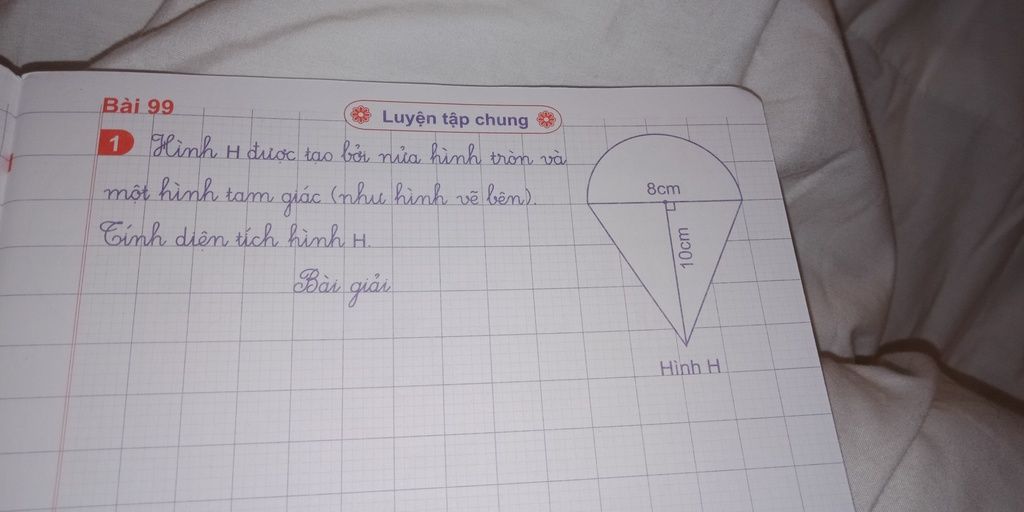 Bài 99
Luyện tập chung
1 Hình H được tạo bởi nửa hình tròn và
một hình tam giác (như hình vẽ bên).
Tính diện tích hình H.
Bài giải
8cm
10cm
Hình H